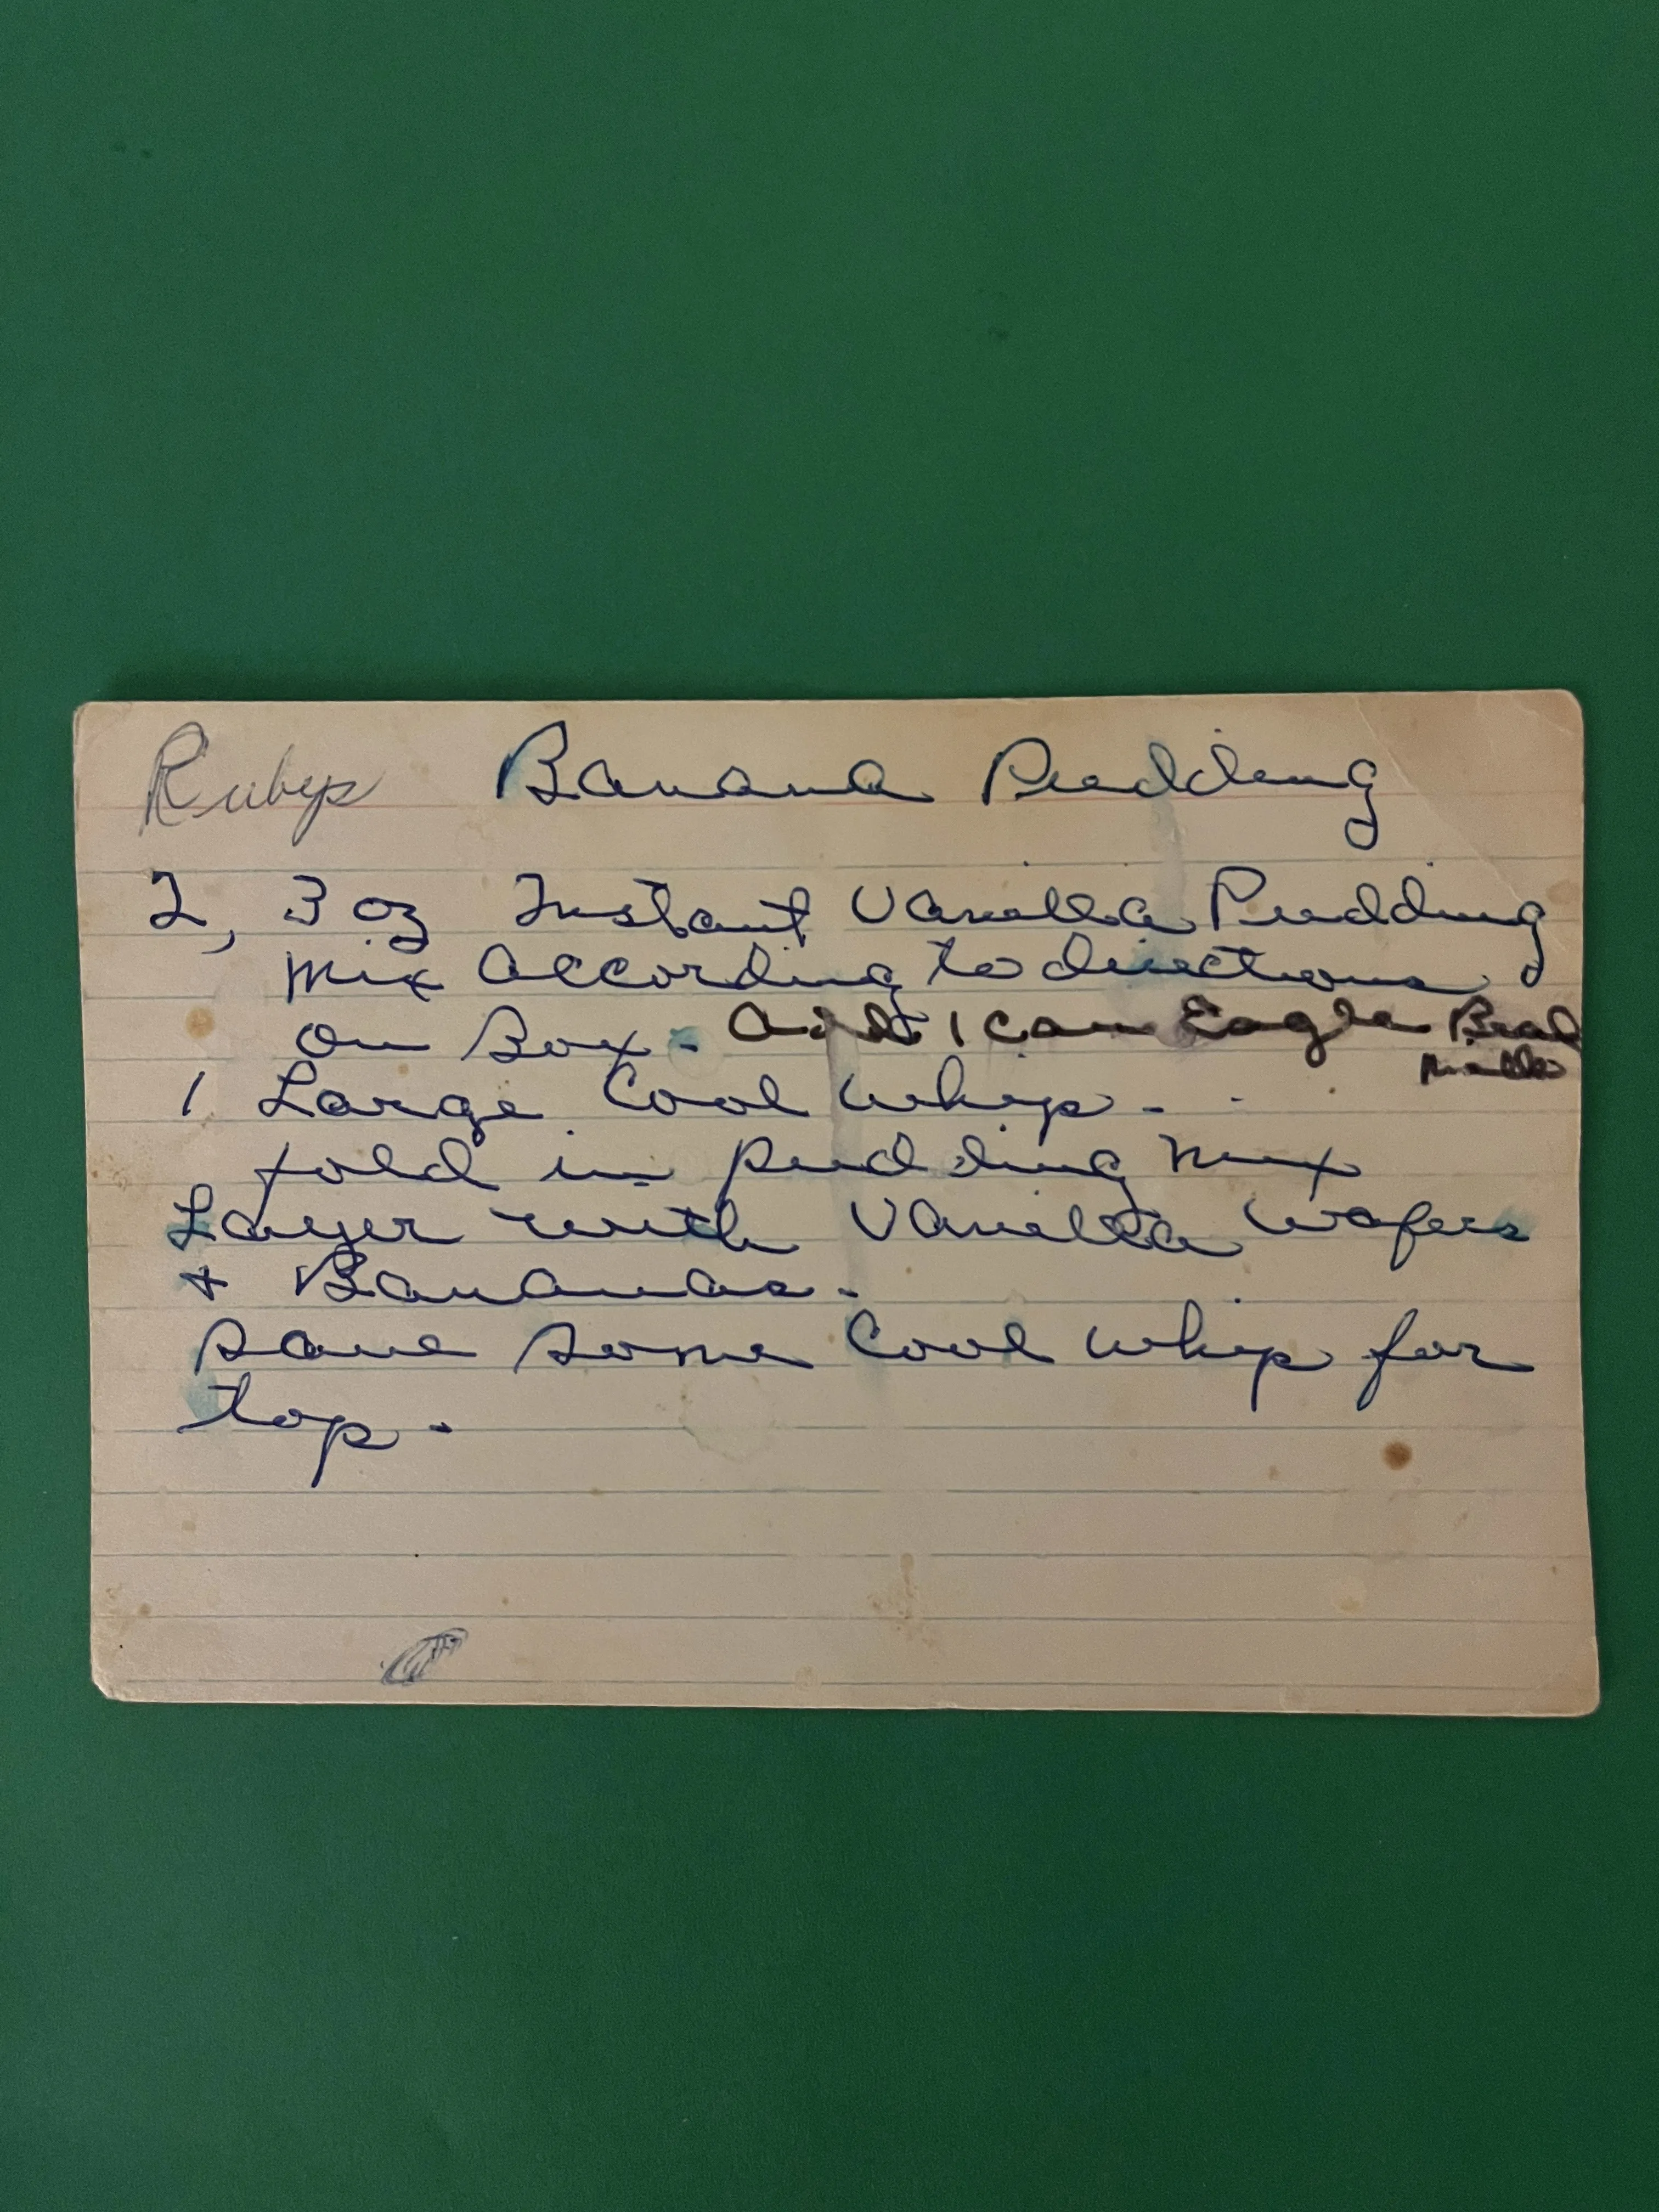 Rubys Banana Pudding
2, 3 oz Instant Vanilla Pudding
mix according to directions
on Box - add 1 can Eagle Brand
milk
1 Large Cool Whip -
fold in pudding mix
Layer with Vanilla Wafers
+ Bananas.
save some Cool Whip for
top.